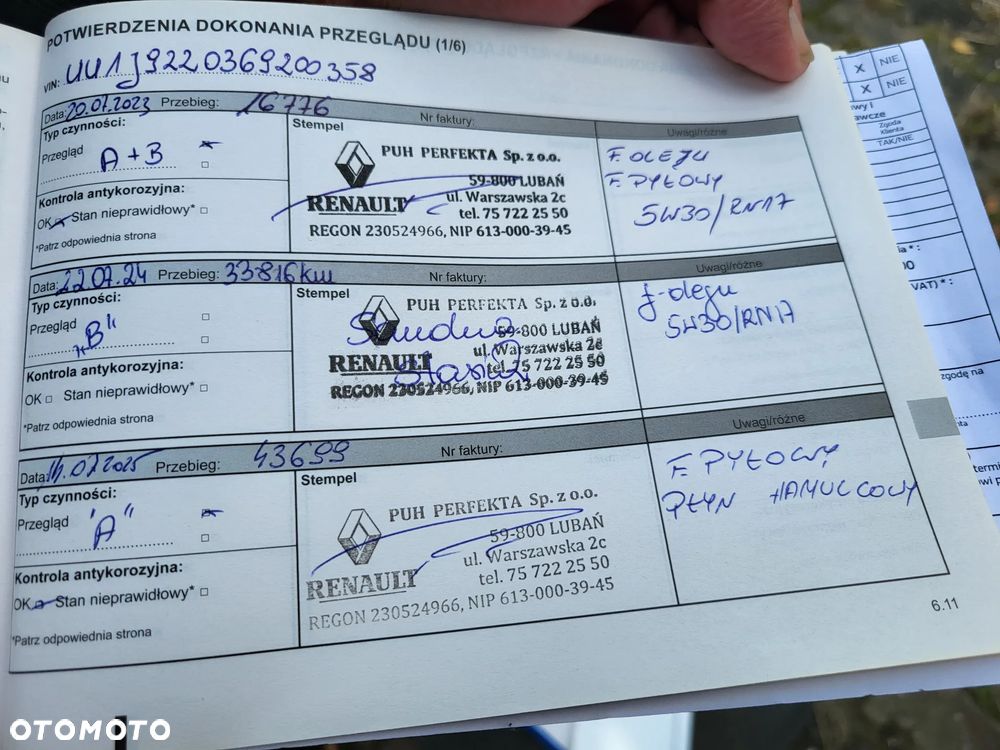 POTWIERDZENIA DOKONANIA PRZEGLĄDU (1/6)
VIN: UU1J9220369200358
Data: 20.07.2023 Przebieg: 16776 Nr faktury: Uwagi/różne
Typ czynności:
Przegląd A+B
Kontrola antykorozyjna:
OK Stan nieprawidłowy*
*Patrz odpowiednia strona
Stempel
PUH PERFEKTA Sp. z o.o.
59-800 LUBAŃ
RENAULT ul. Warszawska 2c
tel. 75 722 25 50
REGON 230524966, NIP 613-000-39-45
F. OLEJU
F. PYŁOWY
5W30/RN17
Data: 22.07.24 Przebieg: 33816km Nr faktury: Uwagi/różne
Typ czynności:
Przegląd „B"
Kontrola antykorozyjna:
OK Stan nieprawidłowy*
*Patrz odpowiednia strona
Stempel
PUH PERFEKTA Sp. z o.o.
59-800 LUBAŃ
RENAULT ul. Warszawska 2c
tel. 75 722 25 50
REGON 230524966, NIP 613-000-39-45
f-oleju
5W30/RN17
Data: 07.2025 Przebieg: 43699 Nr faktury: Uwagi/różne
Typ czynności:
Przegląd "A"
Kontrola antykorozyjna:
OK Stan nieprawidłowy*
*Patrz odpowiednia strona
Stempel
PUH PERFEKTA Sp. z o.o.
59-800 LUBAŃ
ul. Warszawska 2c
RENAULT tel. 75 722 25 50
REGON 230524966, NIP 613-000-39-45
F. PYŁOWY
PŁYN HAMULCOWY
6.11
X NIE
X NIE
Zgoda
Klienta
TAK/NIE
VAT) * :
zgodę na
OTOMOTO